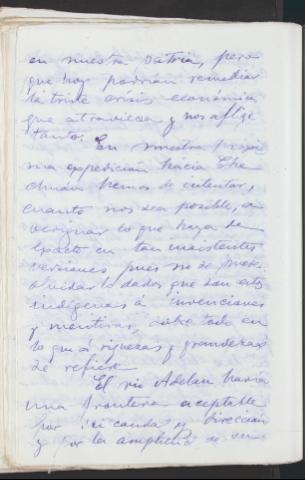 en nuestra patria, pero
que hoy podrían remediar
la triste crisis económica
que atraviesa y nos aflige
tanto.
En nuestra próxi
ma expedición hácia Che
chuán hemos de intentar,
cuanto nos sea posible, a
veriguar lo que haya de
exacto en tan insistentes
versiones pues no se puede
olvidar lo dados que son estos
indígenas á invenciones
y mentiras, sobre todo en
lo que á riquezas y grandezas
se refiere.
El rio Adelau haria
una frontera aceptable
por su caudal y dirección
y por la amplitud de sus